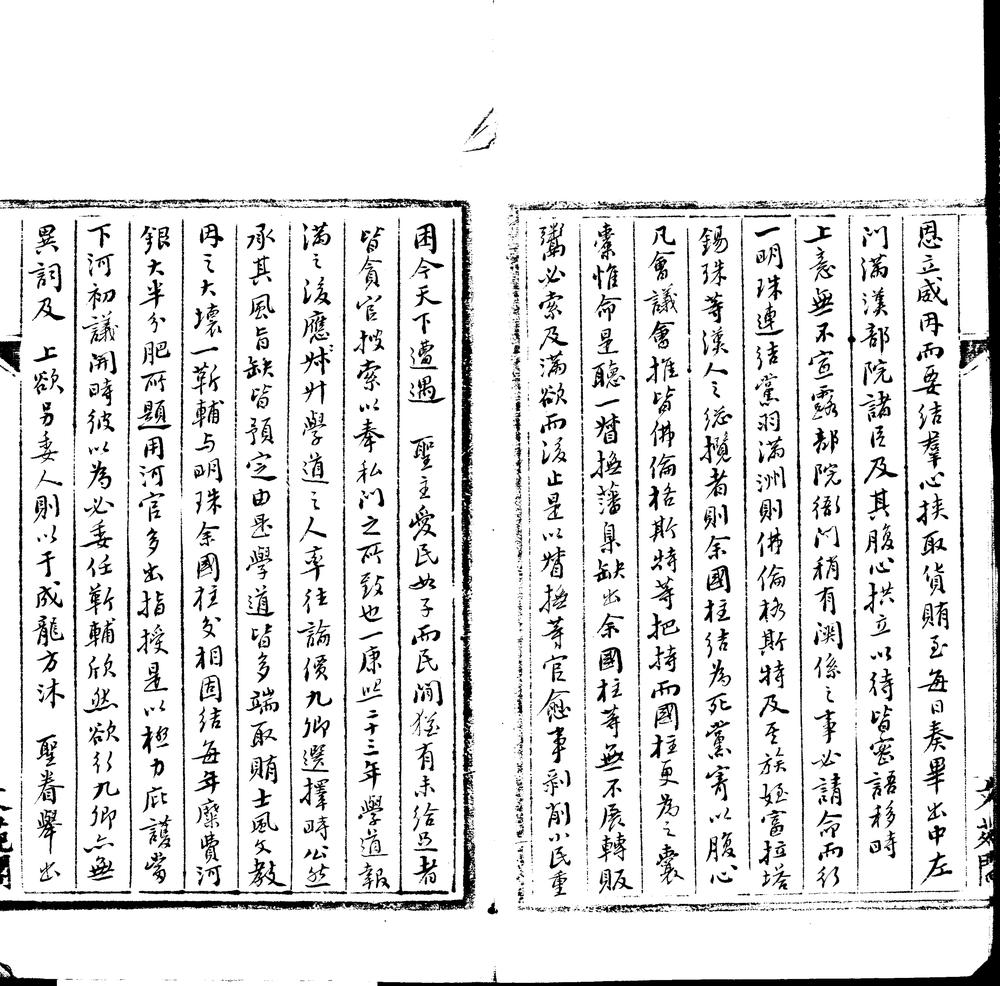 恩立威因而要结羣心挾取貨賄至每日奏畢出中左
門滿漢部院諸臣及其腹心拱立以待皆密語移時
上意無不宣露部院衙门稍有関係之事必請命而行
一明珠連结黨羽滿洲則佛倫格斯特及其族姪富拉塔
錫珠等漢人之総攬者則余國柱结為死黨寄以腹心
凡會議會推皆佛倫格斯特等把持而國柱更為之囊
橐惟命是聽一督撫藩臬缺出余國柱等無不展轉販
鬻必索及滿欲而後止是以督撫等官愈事剥削小民重
困今天下遭遇　聖主愛民如子而民间猶有未给足者
皆貪官搜索以奉私门之所致也一康熙二十三年學道報
滿之後應陞學道之人率往論價九卿選擇時公然
承其風旨缺皆預定由是學道皆多端取賄士風文教
因之大壞一靳輔与明珠余國柱交相固结每年糜費河
銀大半分肥所題用河官多出指授是以極力庇護當
下河初議開時彼以為必委任靳輔欣然欲行九卿亦無
異詞及　上欲另委人則以于成龍方沐　聖眷舉出